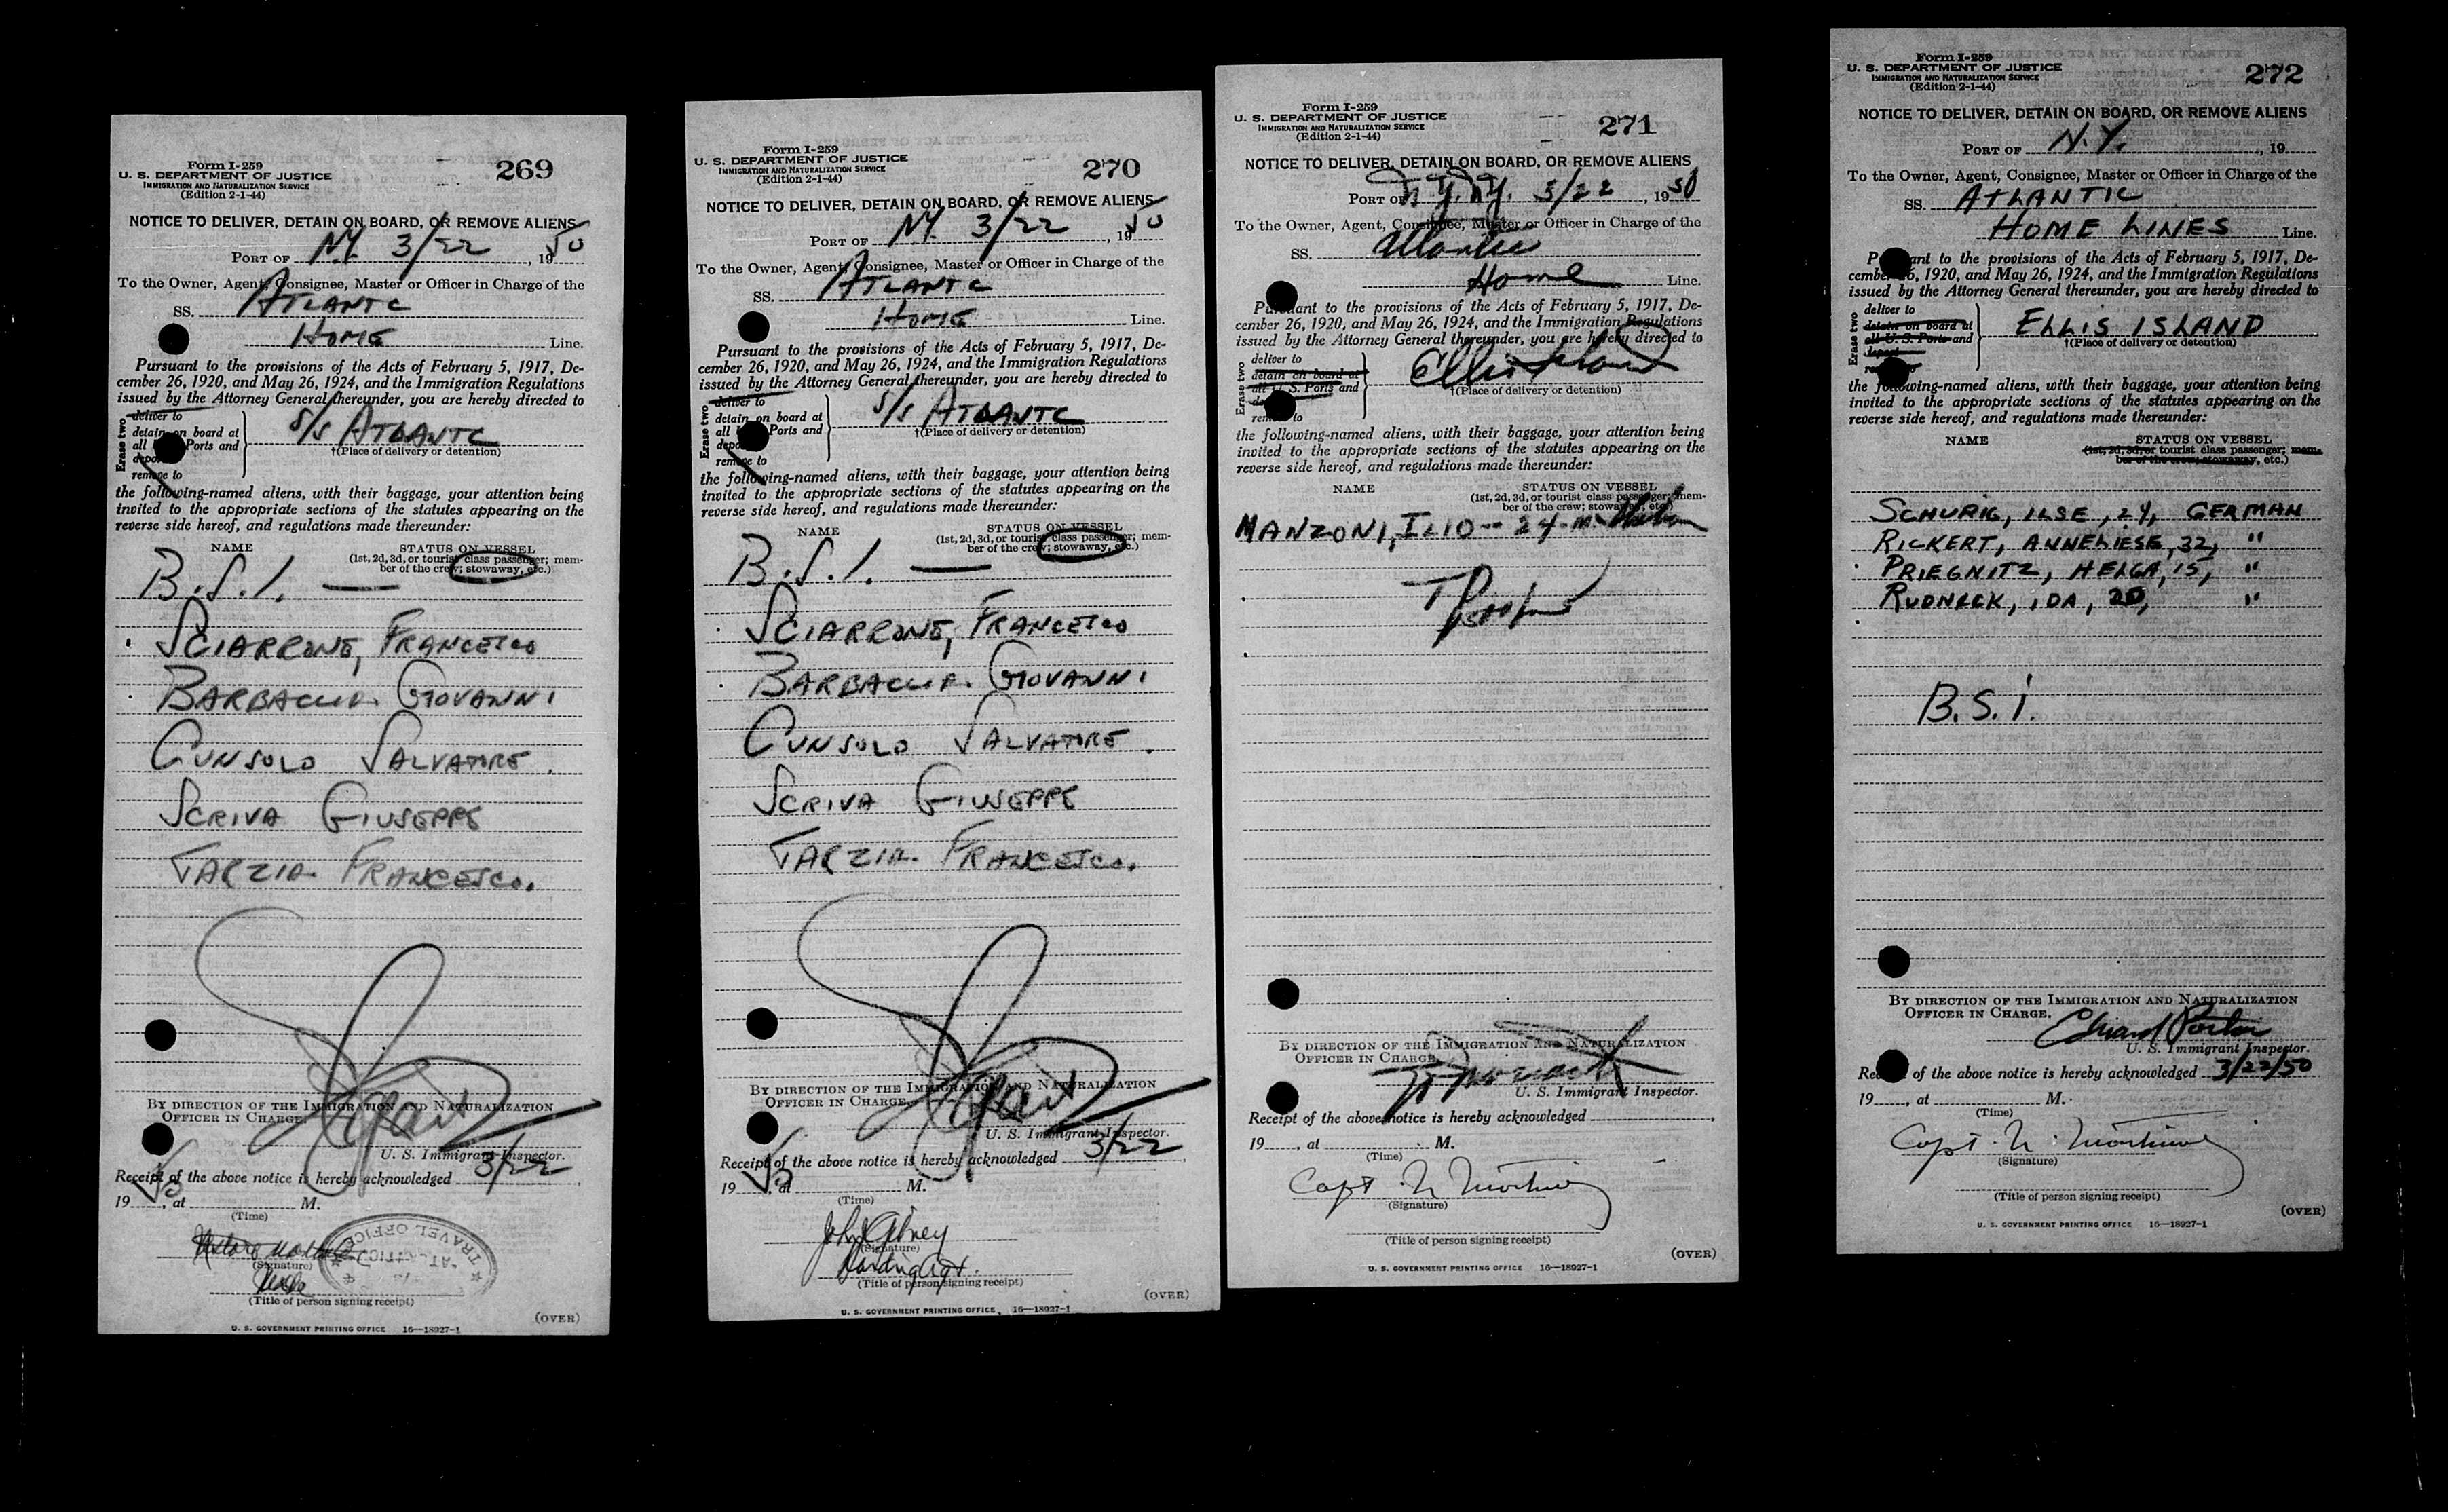 Form I-259
U. S. DEPARTMENT OF JUSTICE
IMMIGRATION AND NATURALIZATION SERVICE
(Edition 2-1-44)
269
NOTICE TO DELIVER, DETAIN ON BOARD, OR REMOVE ALIENS
PORT OF N.Y. 3/22, 1950
To the Owner, Agent, Consignee, Master or Officer in Charge of the
SS. ATLANTC
HOME Line.
Pursuant to the provisions of the Acts of February 5, 1917, De-
cember 26, 1920, and May 26, 1924, and the Immigration Regulations
issued by the Attorney General thereunder, you are hereby directed to
Erase two
deliver to
detain on board at
all Ports and
remove to
S/S ATLANTC
†(Place of delivery or detention)
the following-named aliens, with their baggage, your attention being
invited to the appropriate sections of the statutes appearing on the
reverse side hereof, and regulations made thereunder:
NAME STATUS ON VESSEL
(1st, 2d, 3d, or tourist class passenger; mem-
ber of the crew; stowaway, etc.)
B.S.I. —
SCIARRONE, FRANCESCO
BARBACCIA GIOVANNI
CUNSOLO SALVATORE.
SCRIVA GIUSEPPE
TARZIA FRANCESCO.
BY DIRECTION OF THE IMMIGRATION AND NATURALIZATION
OFFICER IN CHARGE.
U. S. Immigrant Inspector.
Receipt of the above notice is hereby acknowledged 3/22
1950, at M.
(Time)
(Signature)
TRAVEL OFFICE
(Title of person signing receipt)
(OVER)
U. S. GOVERNMENT PRINTING OFFICE 16—18927-1
Form I-259
U. S. DEPARTMENT OF JUSTICE
IMMIGRATION AND NATURALIZATION SERVICE
(Edition 2-1-44)
270
NOTICE TO DELIVER, DETAIN ON BOARD, OR REMOVE ALIENS
PORT OF N.Y. 3/22, 1950
To the Owner, Agent, Consignee, Master or Officer in Charge of the
SS. ATLANTC
HOME Line.
Pursuant to the provisions of the Acts of February 5, 1917, De-
cember 26, 1920, and May 26, 1924, and the Immigration Regulations
issued by the Attorney General thereunder, you are hereby directed to
Erase two
deliver to
detain on board at
all Ports and
remove to
S/S ATLANTC
†(Place of delivery or detention)
the following-named aliens, with their baggage, your attention being
invited to the appropriate sections of the statutes appearing on the
reverse side hereof, and regulations made thereunder:
NAME STATUS ON VESSEL
(1st, 2d, 3d, or tourist class passenger; mem-
ber of the crew; stowaway, etc.)
B.S.I. —
SCIARRONE, FRANCESCO
BARBACCIA GIOVANNI
CUNSOLO SALVATORE.
SCRIVA GIUSEPPE
TARZIA FRANCESCO.
BY DIRECTION OF THE IMMIGRATION AND NATURALIZATION
OFFICER IN CHARGE.
U. S. Immigrant Inspector.
Receipt of the above notice is hereby acknowledged 3/22
1950, at M.
(Time)
John
(Signature)
(Title of person signing receipt)
(OVER)
U. S. GOVERNMENT PRINTING OFFICE 16—18927-1
Form I-259
U. S. DEPARTMENT OF JUSTICE
IMMIGRATION AND NATURALIZATION SERVICE
(Edition 2-1-44)
271
NOTICE TO DELIVER, DETAIN ON BOARD, OR REMOVE ALIENS
PORT OF N.Y. N.Y. 3/22, 1950
To the Owner, Agent, Consignee, Master or Officer in Charge of the
SS. Atlantic
Home Line.
Pursuant to the provisions of the Acts of February 5, 1917, De-
cember 26, 1920, and May 26, 1924, and the Immigration Regulations
issued by the Attorney General thereunder, you are hereby directed to
Erase two
deliver to
detain on board at
all U. S. Ports and
remove to
Ellis Island
†(Place of delivery or detention)
the following-named aliens, with their baggage, your attention being
invited to the appropriate sections of the statutes appearing on the
reverse side hereof, and regulations made thereunder:
NAME STATUS ON VESSEL
(1st, 2d, 3d, or tourist class passenger; mem-
ber of the crew; stowaway, etc.)
MANZONI, ILIO -- 24 - m -
BY DIRECTION OF THE IMMIGRATION AND NATURALIZATION
OFFICER IN CHARGE
U. S. Immigrant Inspector.
Receipt of the above notice is hereby acknowledged
19, at M.
(Time)
Capt. N
(Signature)
(Title of person signing receipt)
(OVER)
U. S. GOVERNMENT PRINTING OFFICE 16—18927-1
Form I-259
U. S. DEPARTMENT OF JUSTICE
IMMIGRATION AND NATURALIZATION SERVICE
(Edition 2-1-44)
272
NOTICE TO DELIVER, DETAIN ON BOARD, OR REMOVE ALIENS
PORT OF N.Y., 19
To the Owner, Agent, Consignee, Master or Officer in Charge of the
SS. ATLANTIC
HOME LINES Line.
Pursuant to the provisions of the Acts of February 5, 1917, De-
cember 26, 1920, and May 26, 1924, and the Immigration Regulations
issued by the Attorney General thereunder, you are hereby directed to
Erase two
deliver to
detain on board at
all U. S. Ports and
deport
ELLIS ISLAND
†(Place of delivery or detention)
the following-named aliens, with their baggage, your attention being
invited to the appropriate sections of the statutes appearing on the
reverse side hereof, and regulations made thereunder:
NAME STATUS ON VESSEL
(1st, 2d, 3d, or tourist class passenger; mem-
ber of the crew; stowaway, etc.)
SCHURIG, ILSE, 24, GERMAN
RICKERT, ANNELIESE, 32, "
PRIEGNITZ, HELGA, 15, "
RUDNECK, IDA, 20, "
B.S.I.
BY DIRECTION OF THE IMMIGRATION AND NATURALIZATION
OFFICER IN CHARGE.
Edward
U. S. Immigrant Inspector.
Receipt of the above notice is hereby acknowledged 3/22/50
19, at M.
(Time)
Capt. N.
(Signature)
(Title of person signing receipt)
(OVER)
U. S. GOVERNMENT PRINTING OFFICE 16—18927-1